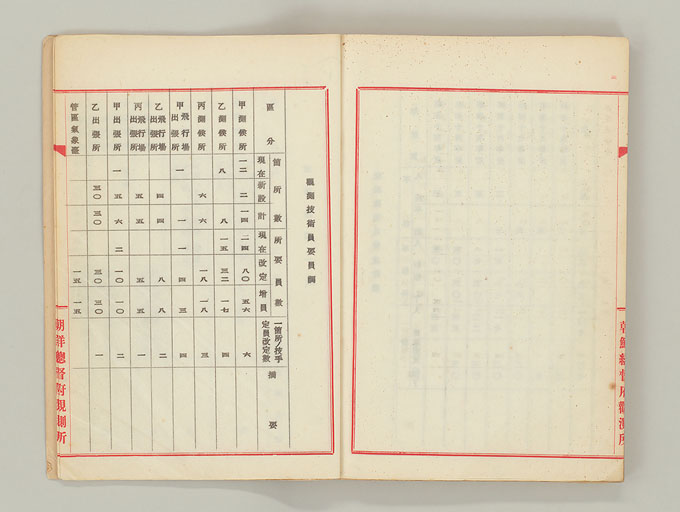 觀測技術員要員調
區分 箇所數 所要員數 一箇所ノ技手定員改定數 摘要
現在 新設 計 現在 改定 增員
甲測候所 一二 二 一四 二四 八〇 五六 六
乙測候所 八 八 一五 三二 一七 四
丙測候所 六 六 一八 一八 三
甲飛行場出張所 一 一 一 四 三 四
乙飛行場出張所 四 四 八 八 二
丙飛行場出張所 五 五 五 五 一
甲出張所 一 五 六 二 一〇 一〇 二
乙出張所 三〇 三〇 三〇 三〇 一
管區氣象臺 一五 一五
朝鮮總督府觀測所
朝鮮總督府觀測所